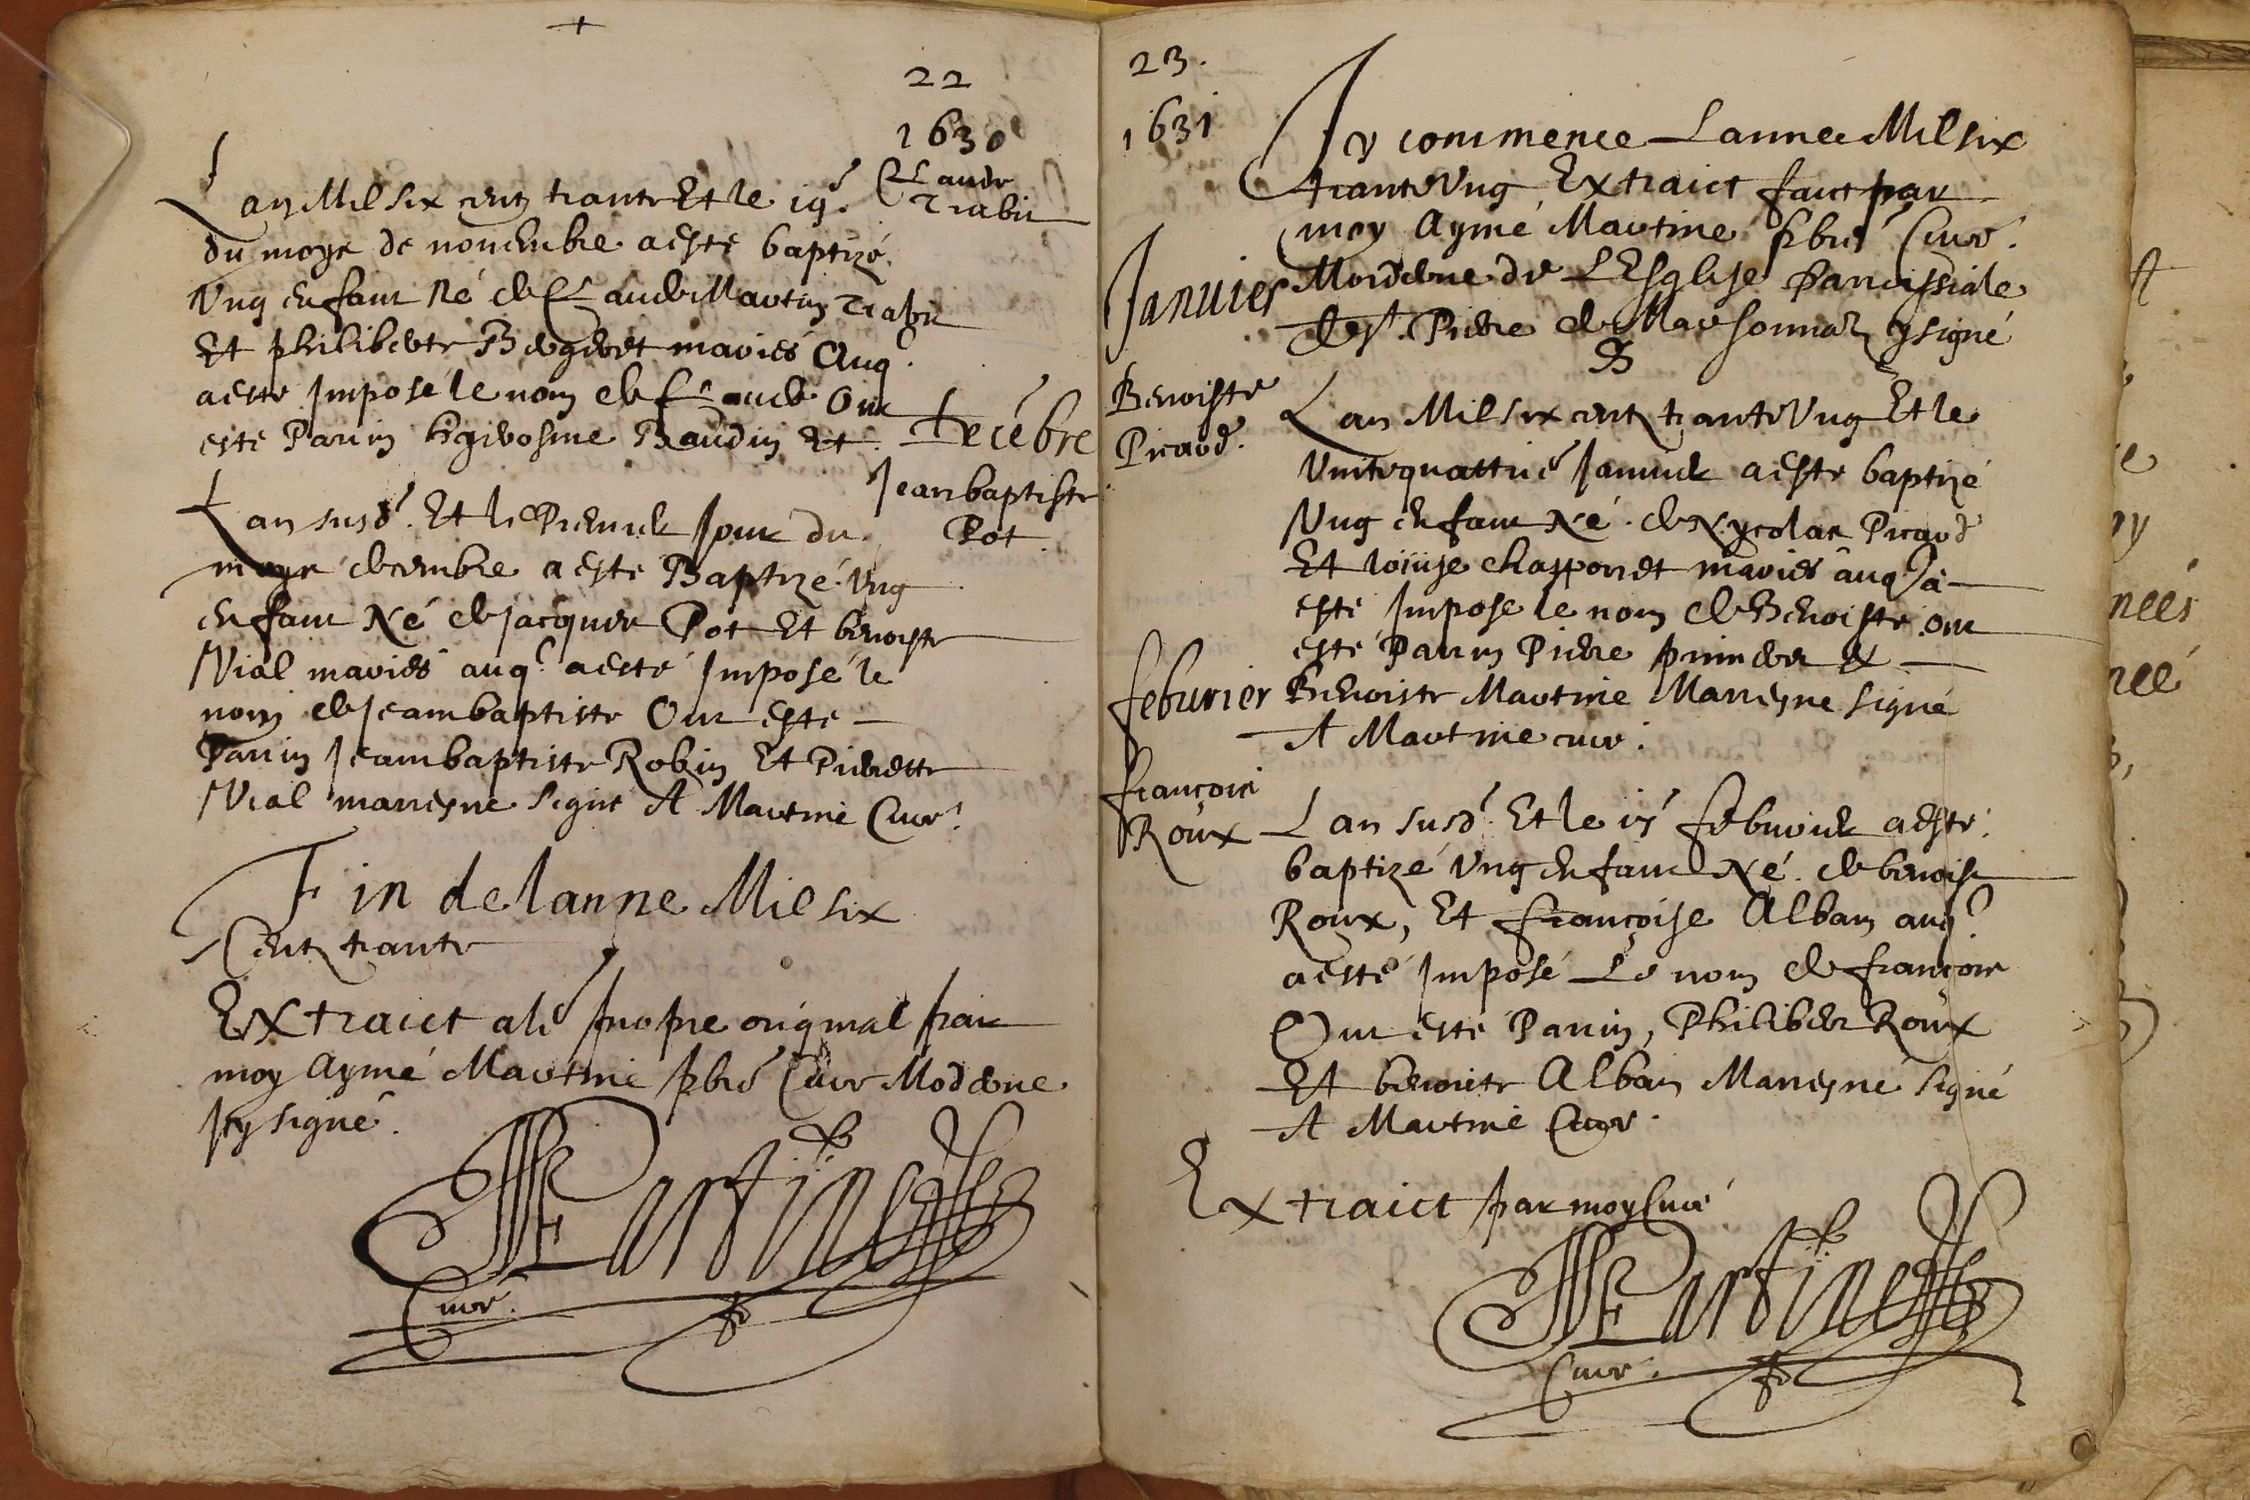 22
1630
Claude
Trabit
Lan Mil six centz trante Et le 19e
du moys de novembre a este baptizé
Ung enfant Né de Claude Martin Trabit
Et philiberte Bergeret mariés Auq.
a este Imposé le nom de Claude Ont
este Parin Hierosme Baudin Et
Decēbre
Jeanbaptiste
Pot
Lan susd. Et le Premier Jour du
moys decembre a este Baptizé Ung
enfant Né de Jacques Pot Et benoiste
Vial mariés auq. a esté Imposé le
nom de Jeambaptiste Ont este
Parin Jeambaptiste Robin Et Pierrette
Vial mareyne signé A Martine Curé.
Fin de lanne Mil six
Centz trante
Extraict a le propre original par
moy Aymé Martine pbre Curé Moderne
Jcy signé.
Martine
Curé.
23.
1631
Icy commence Lannee Mil six
trante Ung Extraict faict par
moy Aymé Martine pbre Curé.
Moderne de LEsglise Paroissiale
de St. Pierre de Marsonnaz ysigné
Januier
Benoiste
Picard.
Lan Mil six centz trante Ung Et le
Vintequattrie Januier a este baptizé
Ung enfant Né de Nycolas Picard
Et loüise chapponet mariés auq. a
esté Imposé le nom de Benoiste ont
esté Parin Pierre &
Benoiste Martine Mareyne signé
A Martine curé.
feburier
françois
Roux
Lan susd. Et le febvrier a este
baptizé Ung enfant Né de benoist
Roux, Et françoise Alban auq.
a esté Imposé Le nom de françois
Ont este Parin, Philibert Roux
Et benoiste Alban Mareyne signé
A Martine Curé.
Extraict par moy Curé
Martine
Curé.